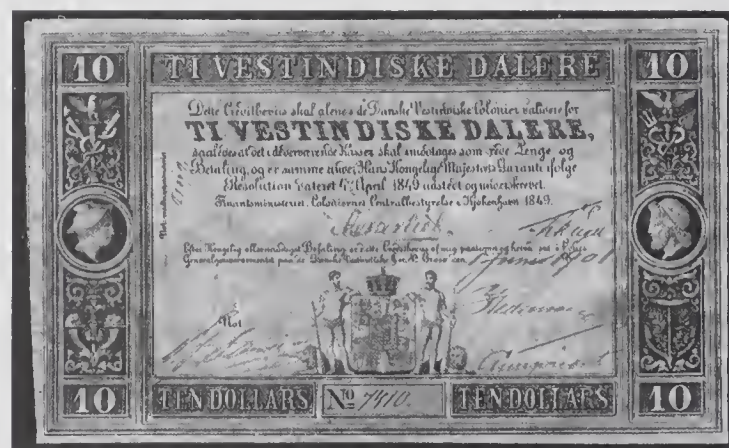 10 TI VESTINDISKE DALERE 10
Dette Creditbeviis skal alene i de Danske Vestindiske Colonier validere for
TI VESTINDISKE DALERE,
saaledes at det i de derværende Kasser skal imodtages som rede Penge og
Betaling, og er samme under Hans Kongelige Majestæts Garanti ifølge
Resolution dateret 4de April 1849 udstedt og underskrevet.
Finantsministeriet, Coloniernes Centralbestyrelse i Kjøbenhavn 1849.
Efter Kongelig allernaadigst Befaling er dette Creditbeviis af mig paategnet og heri sat i
Generalgouvernementet paa de Danske Vestindiske Øer, St. Croix den
Juni 1901
Not
10 TEN DOLLARS No 7410. TEN DOLLARS 10